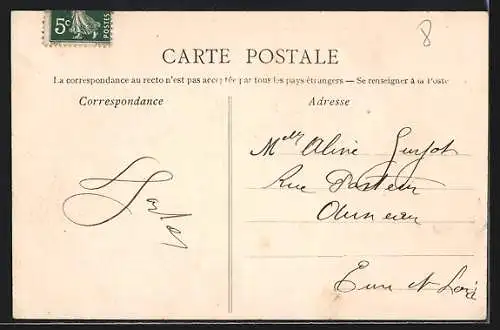 5c POSTES
8
CARTE POSTALE
La correspondance au recto n'est pas acceptée par tous les pays étrangers — Se renseigner à la Poste
Correspondance
Adresse
Melle Aline Guyot
Rue Pasteur
Auneau
Eure et Loir